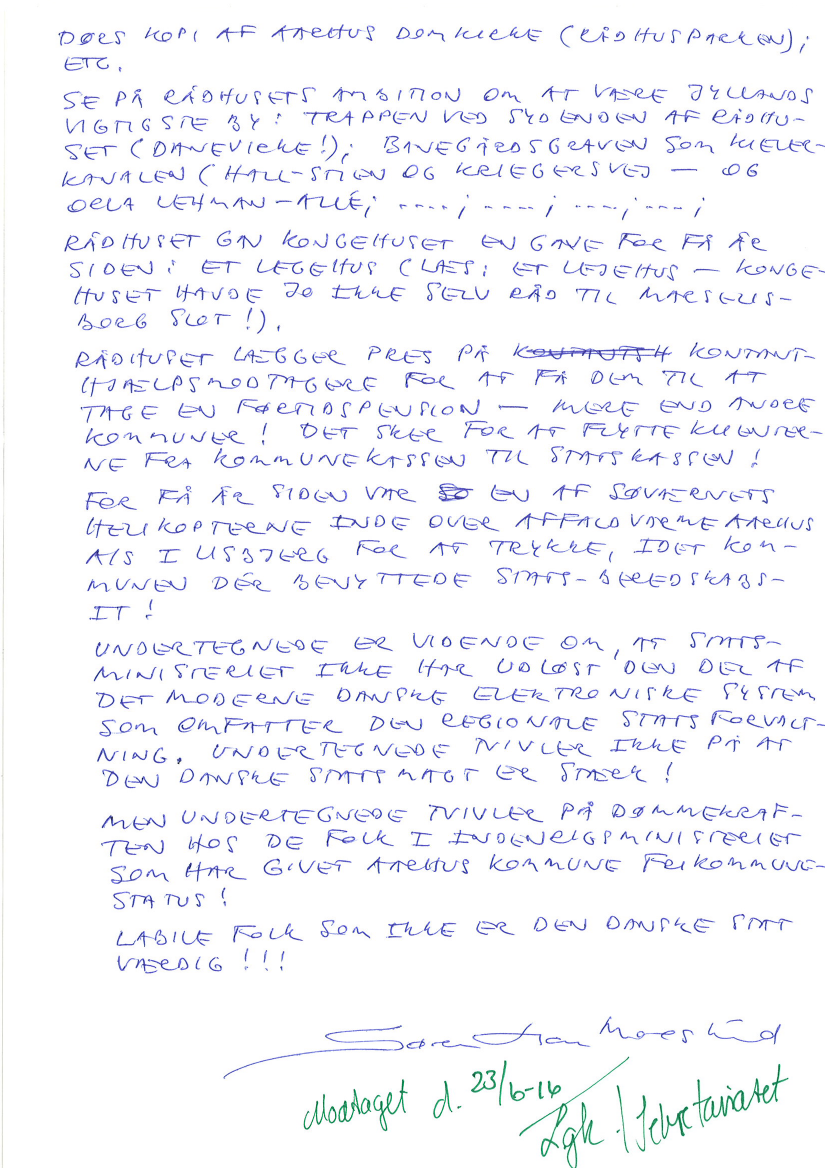 DØRS KOPI AF AARHUS DOMKIRKE (RÅDHUSPARKEN);
ETC.
SE PÅ RÅDHUSETS AMBITION OM AT VÆRE JYLLANDS
VIGTIGSTE BY: TRAPPEN VED SYDENDEN AF RÅDHU-
SET (DANEVIRKE!); BANEGÅRDSGRAVEN SOM KIELER-
KANALEN (HALL-STIEN OG KRIEGERSVEJ — OG
ORLA LEHMAN-ALLÉ; ----; ----; ---; ---;
RÅDHUSET GAV KONGEHUSET EN GAVE FOR FÅ ÅR
SIDEN: ET LEGEHUS (LÆS: ET LEJEHUS — KONGE-
HUSET HAVDE JO IKKE SELV RÅD TIL MARSELIS-
BORG SLOT!).
RÅDHUSET LÆGGER PRES PÅ KONTANT-
HJÆLPSMODTAGERE FOR AT FÅ DEM TIL AT
TAGE EN FØRTIDSPENSION — MERE END ANDRE
KOMMUNER! DET SKER FOR AT FLYTTE KLIENTER-
NE FRA KOMMUNEKASSEN TIL STATSKASSEN!
FOR FÅ ÅR SIDEN VAR EN AF SØVÆRNETS
HELIKOPTERNE INDE OVER AFFALDVARME AARHUS
A/S I LISBJERG FOR AT TRYKKE, IDET KOM-
MUNEN DÉR BENYTTEDE STATS-BEREDSKABS-
IT!
UNDERTEGNEDE ER VIDENDE OM, AT STATS-
MINISTERIET IKKE HAR UDLØST DEN DEL AF
DET MODERNE DANSKE ELEKTRONISKE SYSTEM
SOM OMFATTER DEN REGIONALE STATSFORVALT-
NING. UNDERTEGNEDE TVIVLER IKKE PÅ AT
DEN DANSKE STATSMAGT ER STÆRK!
MEN UNDERTEGNEDE TVIVLER PÅ DØMMEKRAF-
TEN HOS DE FOLK I INDENRIGSMINISTERIET
SOM HAR GIVET AARHUS KOMMUNE FRIKOMMUNE-
STATUS!
LABILE FOLK SOM IKKE ER DEN DANSKE STAT
VÆRDIG!!!
Søren
Modtaget d. 23/6-16
Lgk / Sekretariatet